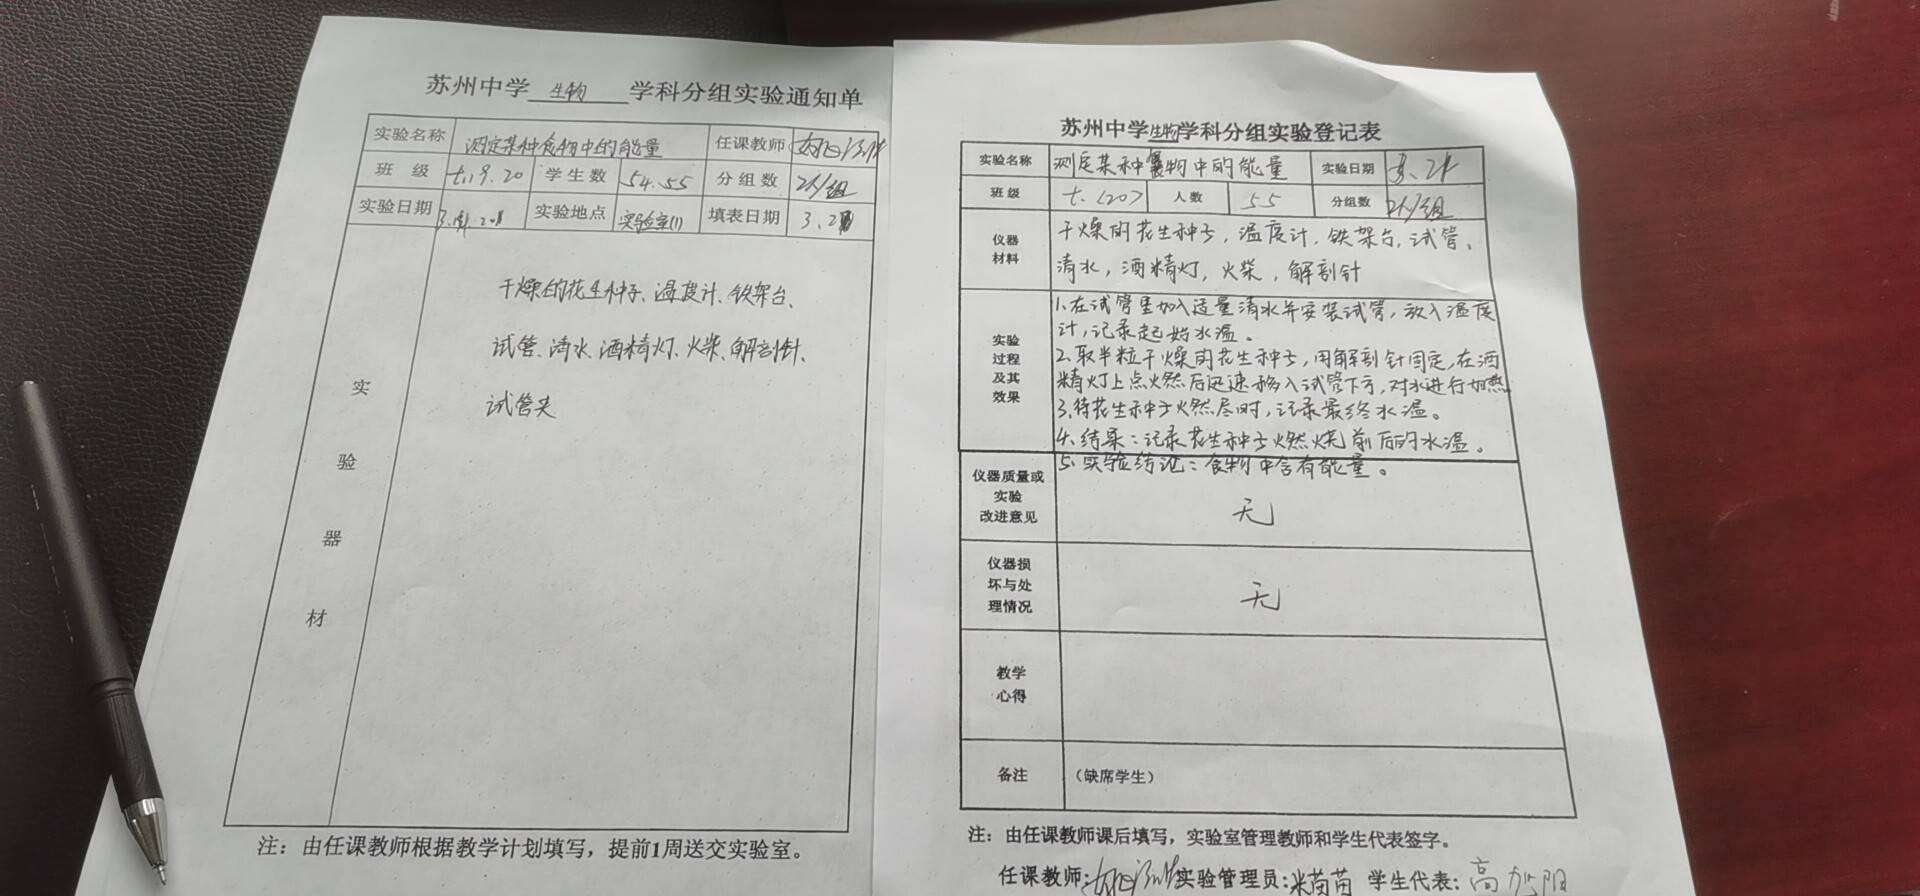 苏州中学 生物 学科分组实验通知单
实验名称 测定某种食物中的能量 任课教师
班 级 七.19.20 学生数 54.55 分组数 2人/组
实验日期 实验地点 实验室(1) 填表日期
实验器材
干燥的花生种子、温度计、铁架台、
试管、清水、酒精灯、火柴、解剖针、
试管夹
注：由任课教师根据教学计划填写，提前1周送交实验室。
苏州中学生物学科分组实验登记表
实验名称 测定某种食物中的能量 实验日期
班 级 七.(20) 人数 55 分组数 2人/组
仪器材料
干燥的花生种子，温度计，铁架台，试管、
清水，酒精灯，火柴，解剖针
实验过程及其效果
1.在试管里加入适量清水并安装试管，放入温度
计，记录起始水温。
2.取半粒干燥的花生种子，用解剖针固定，在酒
精灯上点火然后迅速移入试管下方，对水进行加热
3.待花生种子火燃尽时，记录最终水温。
4.结果：记录花生种子燃烧前后的水温。
5.实验结论：食物中含有能量。
仪器质量或实验改进意见 无
仪器损坏与处理情况 无
教学心得
备注 （缺席学生）
注：由任课教师课后填写，实验室管理教师和学生代表签字。
任课教师: 实验管理员:米茵茵 学生代表:高旭阳